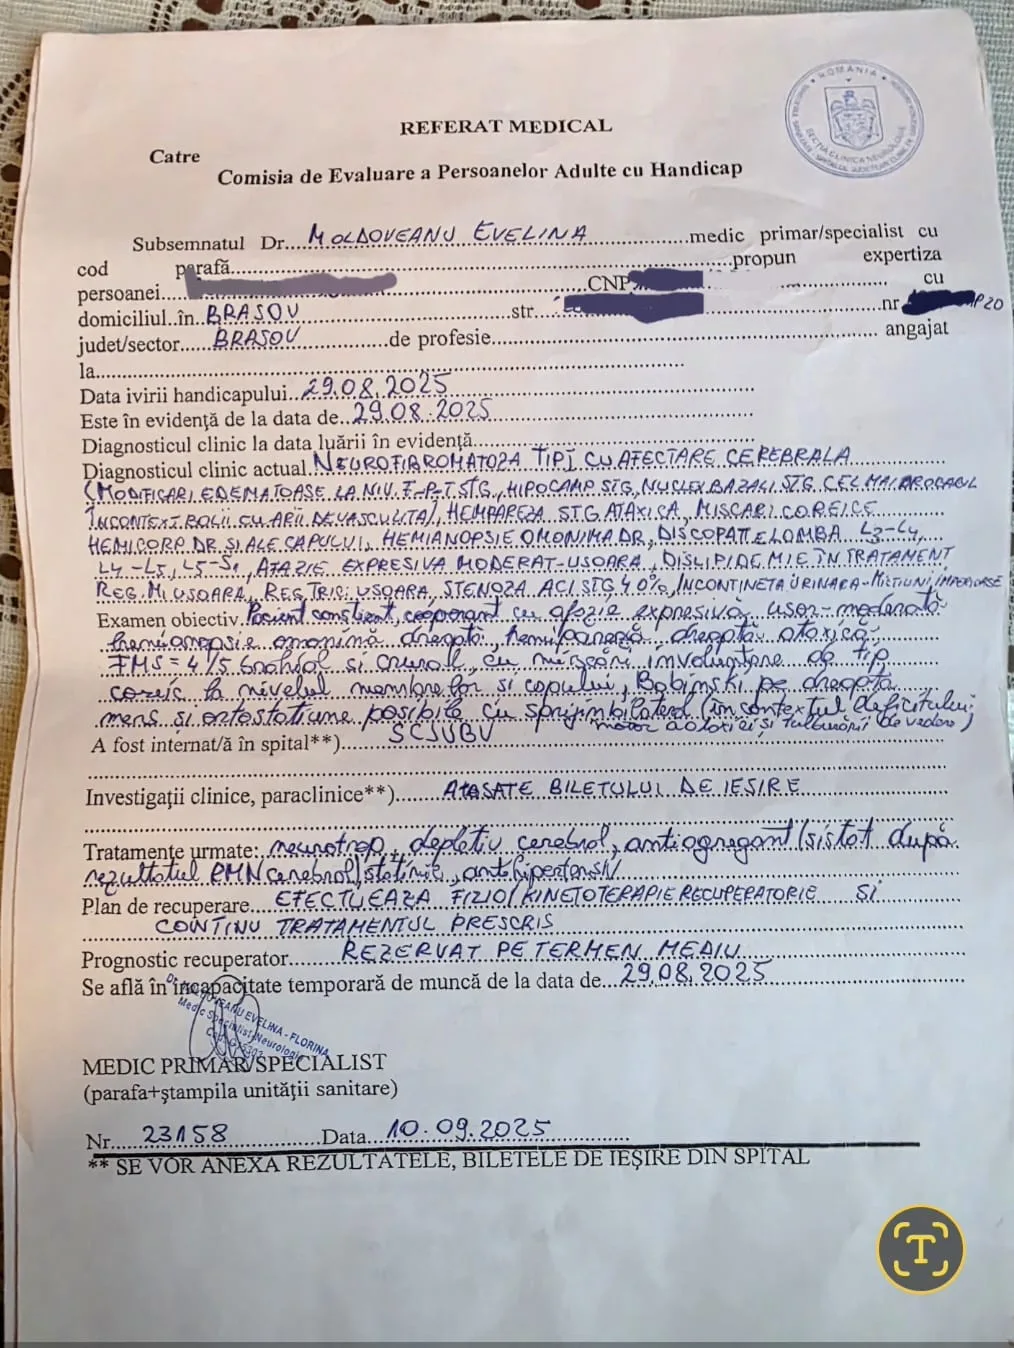 ROMANIA
SECȚIA CLINICA NEUROLOGIE
REFERAT MEDICAL
Catre
Comisia de Evaluare a Persoanelor Adulte cu Handicap
Subsemnatul Dr....MOLDOVEANU EVELINA...medic primar/specialist cu
cod parafă...propun expertiza
persoanei...CNP...cu
domiciliul..în..BRASOV...str...nr...AP20
judet/sector.....BRASOV...de profesie...angajat
la...
Data ivirii handicapului..29.08.2025
Este în evidenţă de la data de..29.08.2025
Diagnosticul clinic la data luării în evidenţă...
Diagnosticul clinic actual.NEUROFIBROMATOZA TIP I CU AFECTARE CEREBRALA
(MODIFICARI EDEMATOASE LA NIV. F-P-T STG, HIPOCAMP STG, NUCLEI BAZALI STG CEL MAI PROBABIL
IN CONTEXT BOLII CU ARII DEVASCULITA), HEMPAREZA STG ATAXICA, MISCARI COREICE
HEMICORP DR SI ALE CAPULUI, HEMIANOPSIE OMONIMA DR, DISCOPATIE LOMBA L3-L4,
L4-L5, L5-S1, AFAZIE EXPRESIVA MODERAT-USOARA, DISLIPIDEMIE ÎN TRATAMENT
REG. MI USOARA, REG TRIC. USOARA, STENOZA ACI STG 40%, INCONTINETA URINARA-MICTIUNI IMPERIOASE
Examen obiectiv.Pacient constient, cooperant cu afazie expresivă usor-moderată
hemianopsie omonimă dreaptă, hemipareză dreaptă ataxică
FMS = 4/5 brahial si crural, cu miscări involuntare de tip
coreic la nivelul membrelor si capului, Babinski pe dreapta
mers si ortostatiune posibile cu sprijin bilateral (în contextul deficitului
motor, ataxiei si tulburării de vedere)
A fost internat/ă în spital**)....SCJUBV
Investigaţii clinice, paraclinice**)....ATASATE BILETULUI DE IESIRE
Tratamente urmate: neurotrop, depletiv cerebral, antiagregant (sistat după
rezultatul RMN cerebral) statine, antihipertensiv
Plan de recuperare...EFECTUEAZA FIZIO/KINETOTERAPIE RECUPERATORIE SI
CONTINU TRATAMENTUL PRESCRIS
Prognostic recuperator......REZERVAT PE TERMEN MEDIU
Se află în incapacitate temporară de muncă de la data de...29.08.2025
Dr. MOLDOVEANU EVELINA - FLORINA
Medic Specialist Neurologie
MEDIC PRIMAR/SPECIALIST
(parafa+ştampila unităţii sanitare)
Nr....23158...Data...10.09.2025
** SE VOR ANEXA REZULTATELE, BILETELE DE IEŞIRE DIN SPITAL